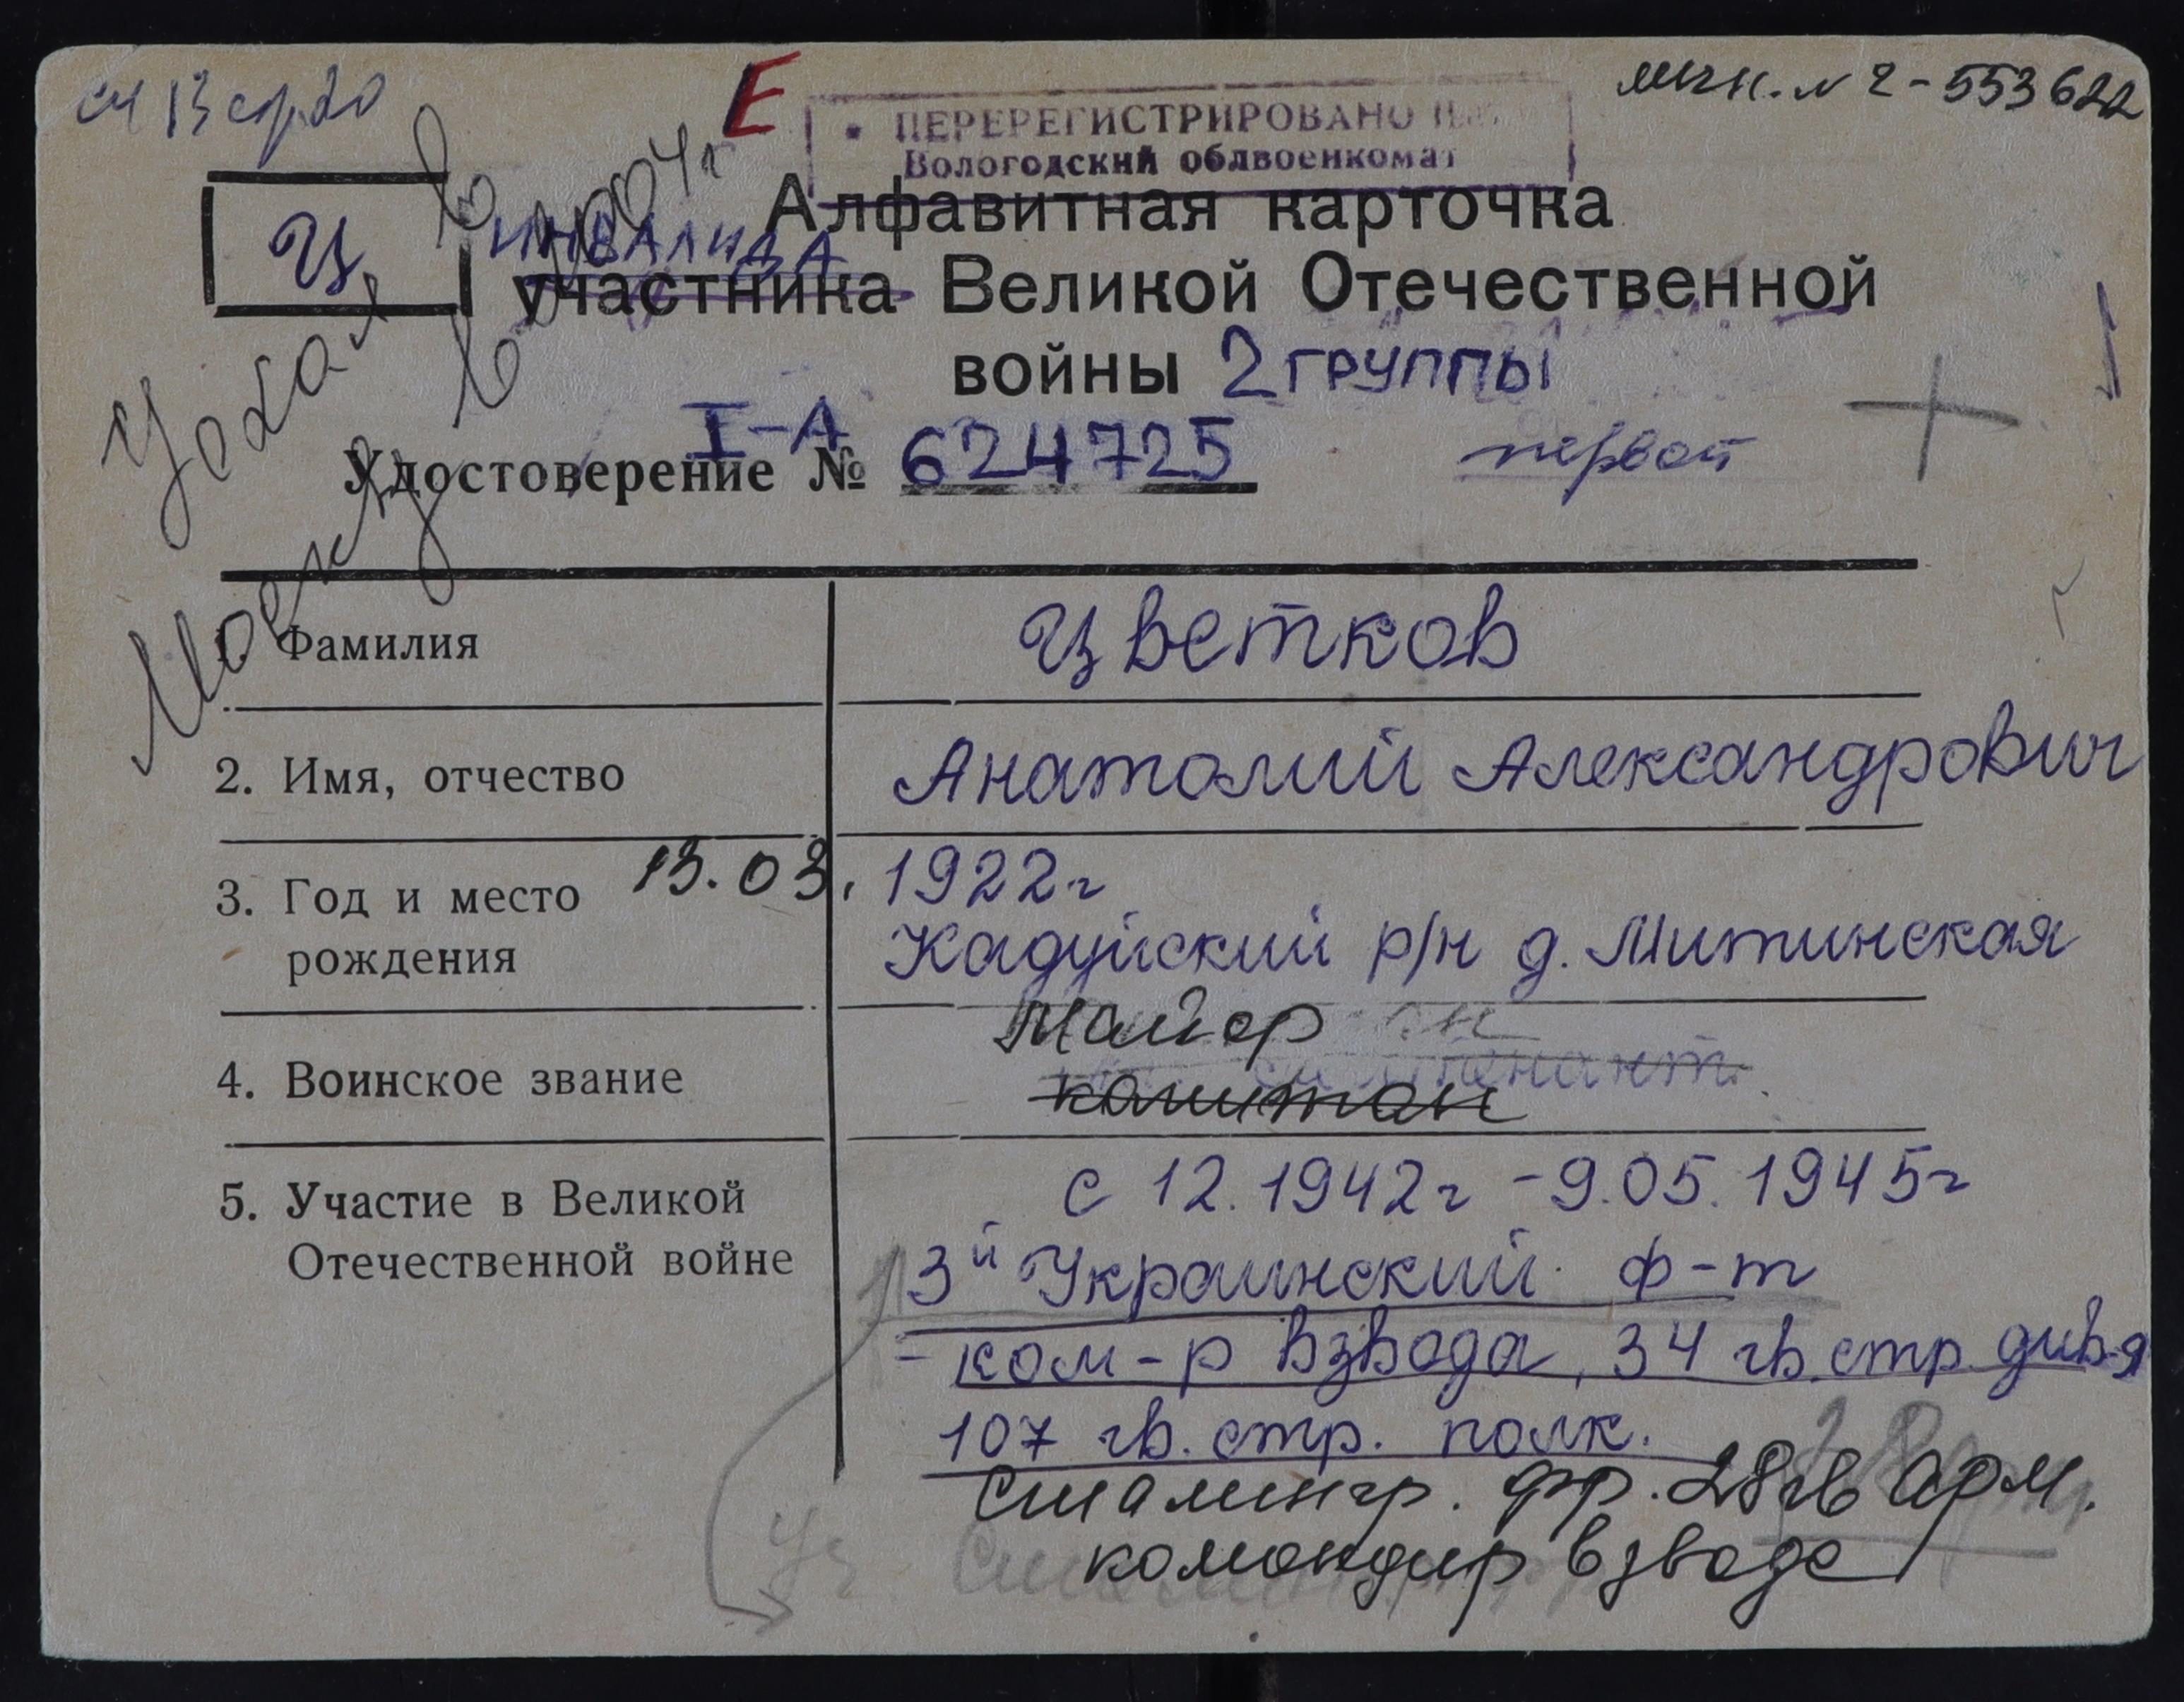 см 13 стр. 20
Е
ПЕРЕРЕГИСТРИРОВАНО
Вологодский облвоенкомат
личн. № 2-553622
Ц
Уехал в
Москву в 2004 г
Алфавитная карточка
ИНВАЛИДА
участника Великой Отечественной
войны 2 ГРУППЫ
первой
I-А
Удостоверение № 624725
Фамилия Цветков
2. Имя, отчество Анатолий Александрович
3. Год и место 13.03. 1922г
рождения Кадуйский р/н д. Митинская
майор
4. Воинское звание лейтенант
капитан
5. Участие в Великой с 12.1942г - 9.05.1945г
Отечественной войне 3й Украинский ф-т
- ком-р взвода, 34 гв. стр. див-я
107 гв. стр. полк.
Сталингр. фр. 28 гв арм.
командир взвода